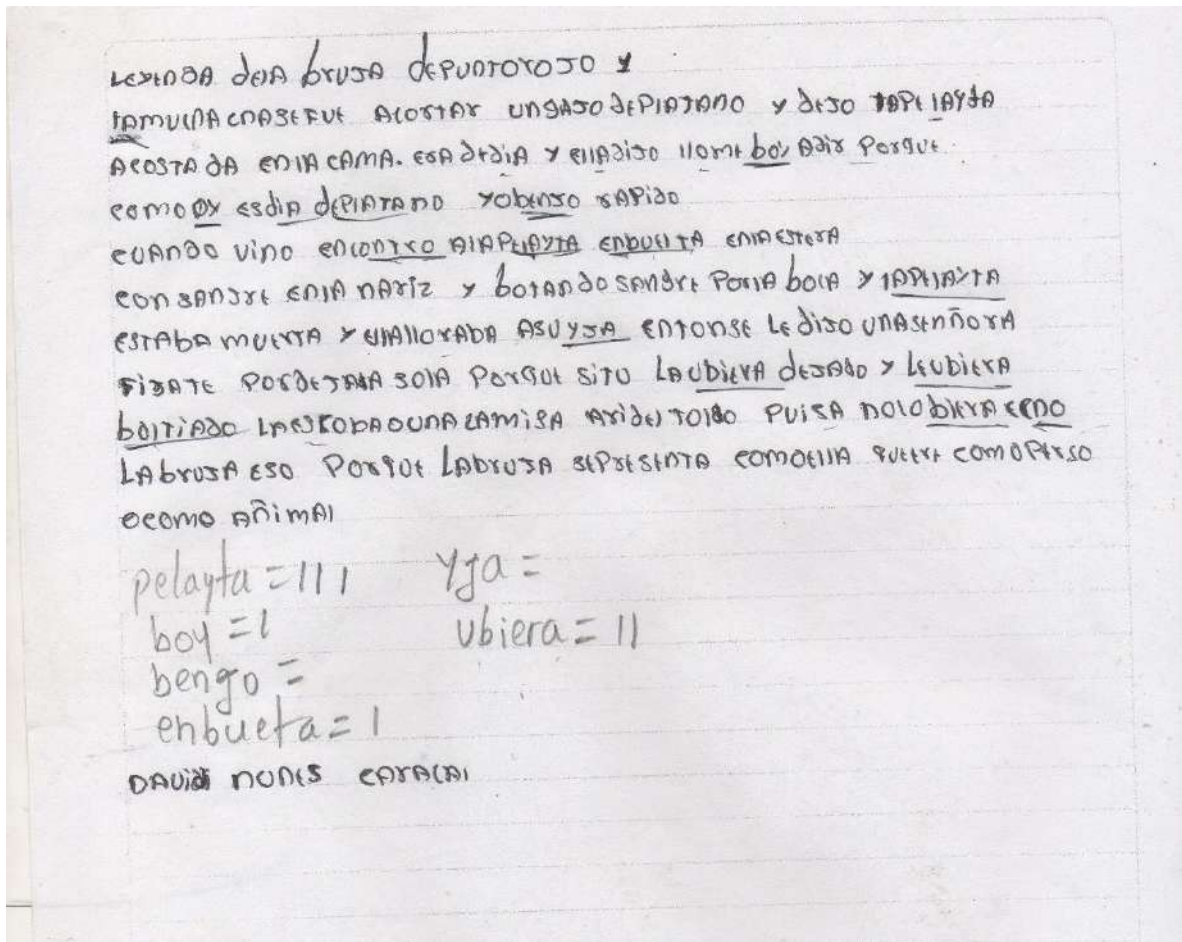 LEYENDA DELA bruJA dEPUNTOROJO Y
LAMUCHA CHASEFUE ACOSTAR UNGAJO dEPLATANO Y dEJO LAPELAYTA
ACOSTADA ENLA CAMA. ERA dEdIA Y ELLADIJO LLOME boy AdIR PORQUE
COMO OY ESdIA dEPLATANO YObENGO RAPIdO
CUANDO VINO ENCONTRO ALAPELAYTA ENbUELTA ENLAESTERA
CON SANGRE ENLA NARIZ Y bOTANdOSANGRE PORLA bOCA Y LAPELAYTA
ESTAbA MUERTA Y ELLALLORAbA ASUYJA ENTONSE LE dIJO UNASEÑORA
FIJATE PORdEJALA SOLA PORQUE SITU LAUbIERA dEJADO Y LEUbIERA
bOLTIADO LAESCObAOUNA CAMISA ARIdEL TOLDO PUISA NOLO bIERA ECNO
LAbRUJA ESO PORQUE LAbRUJA SEPRESENTA COMOELLA QUIERE COMOPERSO
OCOMO AÑIMAL
pelayta = III yja =
boy = I ubiera = II
bengo =
enbuelta = I
DAVID NUNES CARACAL